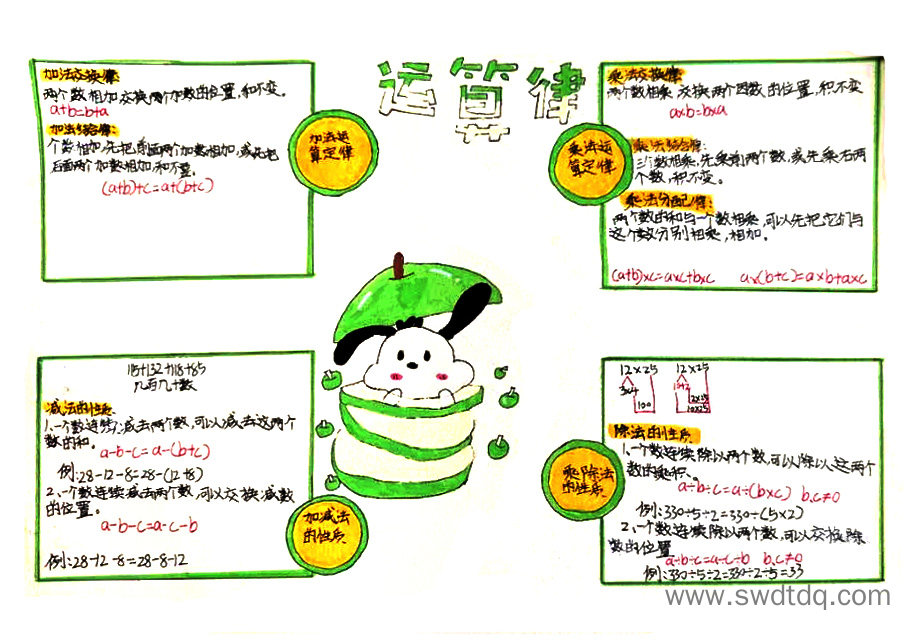 运算律
加法交换律:
两个数相加交换两个加数的位置,和不变。
a+b=b+a
加法结合律:
个数相加,先把前面两个加数相加,或先把
后面两个加数相加,和不变。
(a+b)+c=a+(b+c)
加法运
算定律
乘法交换律:
两个数相乘 交换两个因数的位置,积不变
a×b=b×a
乘法结合律:
三个数相乘,先乘前两个数,或先乘右两
个数,积不变。
乘法分配律:
两个数的和与一个数相乘,可以先把它们与
这个数分别相乘,相加。
(a+b)×c=a×c+b×c a×(b+c)=a×b+a×c
乘法运
算定律
115+132+118+85
几百几十数
减法的性质
1.一个数连续减去两个数,可以减去这两个
数的和。
a-b-c=a-(b+c)
例:28-12-8=28-(12+8)
2、一个数连续减去两个数,可以交换减数
的位置。
a-b-c=a-c-b
例:28-12-8=28-8-12
加减法
的性质
12×25 12×25
3×4 10+2
100 2×25
10×25
除法的性质
1、一个数连续除以两个数,可以除以这两个
数的乘积、。
a÷b÷c=a÷(b×c) b.c≠0
例:330÷5÷2=330÷(5×2)
2、一个数连续除以两个数,可以交换除
数的位置
a÷b÷c=a÷c÷b b.c≠0
例:330÷5÷2=330÷2÷5=33
乘除法
的性质
www.swdtdq.com